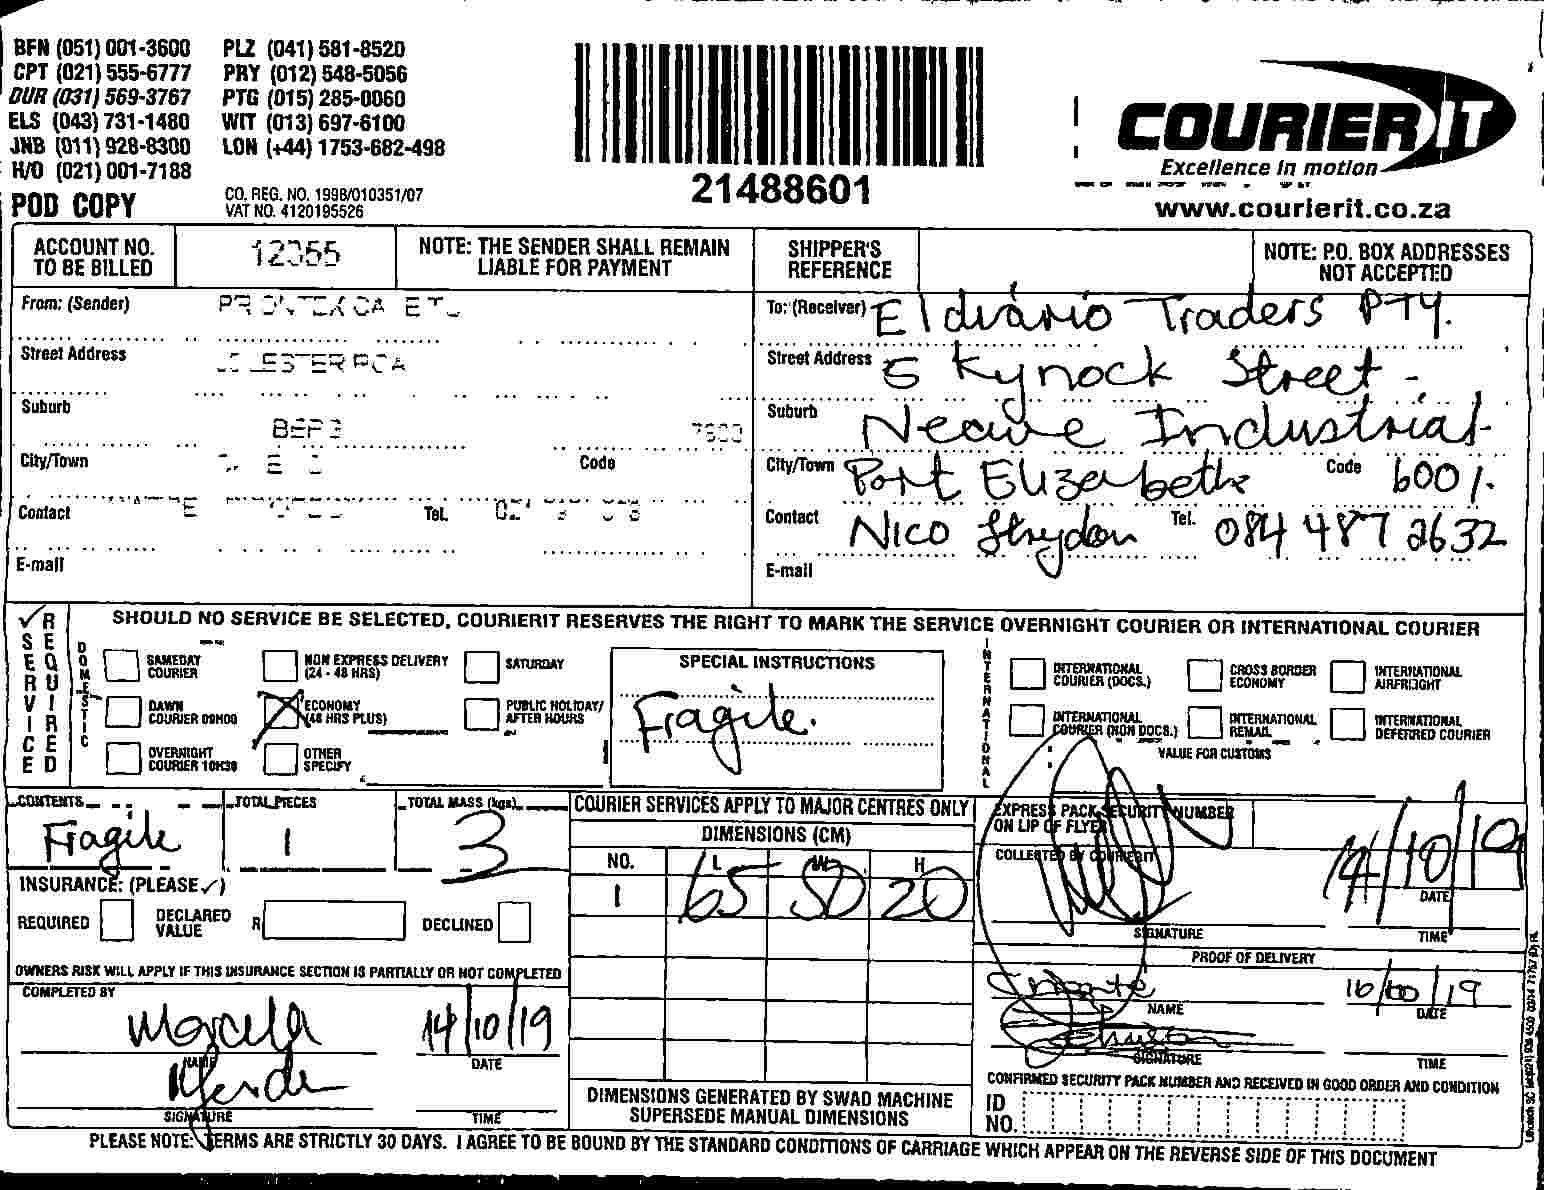 BFN (051) 001-3600 PLZ (041) 581-8520
CPT (021) 555-6777 PRY (012) 548-5056
DUR (031) 569-3767 PTG (015) 285-0060
ELS (043) 731-1480 WIT (013) 697-6100
JNB (011) 928-8300 LON (+44) 1753-682-498
H/O (021) 001-7188
POD COPY
CO. REG. NO. 1998/010351/07
VAT NO. 4120195526
21488601
COURIER IT
Excellence in motion
www.courierit.co.za
ACCOUNT NO. TO BE BILLED
NOTE: THE SENDER SHALL REMAIN LIABLE FOR PAYMENT
SHIPPER'S REFERENCE
NOTE: P.O. BOX ADDRESSES NOT ACCEPTED
From: (Sender)
Street Address
Suburb
City/Town Code
Contact Tel.
E-mail
To: (Receiver) Eldiário Traders PTY.
Street Address 5 Kynock Street -
Suburb Neave Industrial
City/Town Port Elizabeth Code 6001.
Contact Nico Strydom Tel. 084 487 2632
E-mail
SERVICE REQUIRED
SHOULD NO SERVICE BE SELECTED, COURIERIT RESERVES THE RIGHT TO MARK THE SERVICE OVERNIGHT COURIER OR INTERNATIONAL COURIER
DOMESTIC
SAMEDAY COURIER
NON EXPRESS DELIVERY (24 - 48 HRS)
SATURDAY
DAWN COURIER 09H00
ECONOMY (48 HRS PLUS)
PUBLIC HOLIDAY/ AFTER HOURS
OVERNIGHT COURIER 10H30
OTHER SPECIFY
SPECIAL INSTRUCTIONS
Fragile.
INTERNATIONAL
INTERNATIONAL COURIER (DOCS.)
CROSS BORDER ECONOMY
INTERNATIONAL AIRFREIGHT
INTERNATIONAL COURIER (NON DOCS.)
INTERNATIONAL REMAIL
INTERNATIONAL DEFERRED COURIER
VALUE FOR CUSTOMS
CONTENTS TOTAL PIECES TOTAL MASS (kgs)
Fragile 1 3
INSURANCE: (PLEASE ✓)
REQUIRED DECLARED VALUE R DECLINED
OWNERS RISK WILL APPLY IF THIS INSURANCE SECTION IS PARTIALLY OR NOT COMPLETED
COMPLETED BY
Marcela 14/10/19
NAME DATE
SIGNATURE TIME
COURIER SERVICES APPLY TO MAJOR CENTRES ONLY
DIMENSIONS (CM)
NO. L W H
1 65 50 20
DIMENSIONS GENERATED BY SWAD MACHINE SUPERSEDE MANUAL DIMENSIONS
EXPRESS PACK SECURITY NUMBER ON LIP OF FLYER
COLLECTED BY COURIERIT
14/10/19
DATE
SIGNATURE TIME
PROOF OF DELIVERY
NAME DATE
SIGNATURE TIME
CONFIRMED SECURITY PACK NUMBER AND RECEIVED IN GOOD ORDER AND CONDITION
ID NO.
PLEASE NOTE: TERMS ARE STRICTLY 30 DAYS. I AGREE TO BE BOUND BY THE STANDARD CONDITIONS OF CARRIAGE WHICH APPEAR ON THE REVERSE SIDE OF THIS DOCUMENT